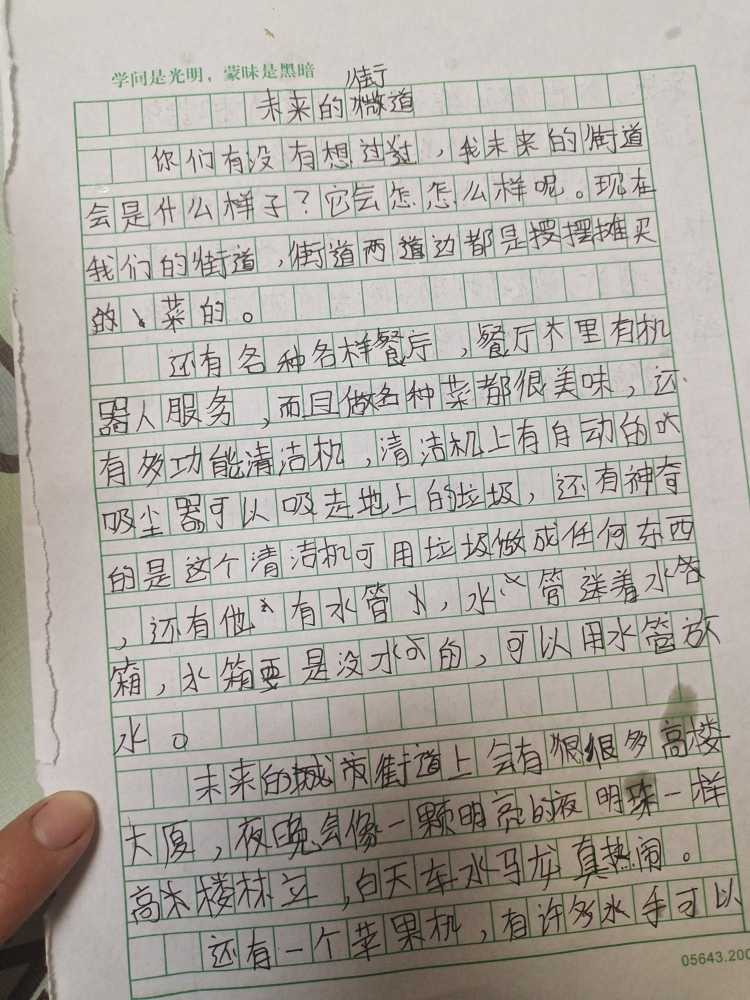 学问是光明，蒙昧是黑暗
街
未来的道
你们有没有想过，我未来的街道
会是什么样子？它会怎怎么样呢。现在
我们的街道，街道两道边都是摆摊买
的菜的。
还有各种各样餐厅，餐厅里有机
器人服务，而且做各种菜都很美味，还
有多功能清洁机，清洁机上有自动的
吸尘器可以吸走地上的垃圾，还有神奇
的是这个清洁机可用垃圾做成任何东西
，还有他有水管，水管送着水
箱，水箱要是没水的，可以用水管放
水。
未来的城市街道上会有很很多高楼
大厦，夜晚会像一颗明亮的夜明珠一样
高楼林立，白天车水马龙真热闹。
还有一个苹果机，有许多水手可以
05643.200